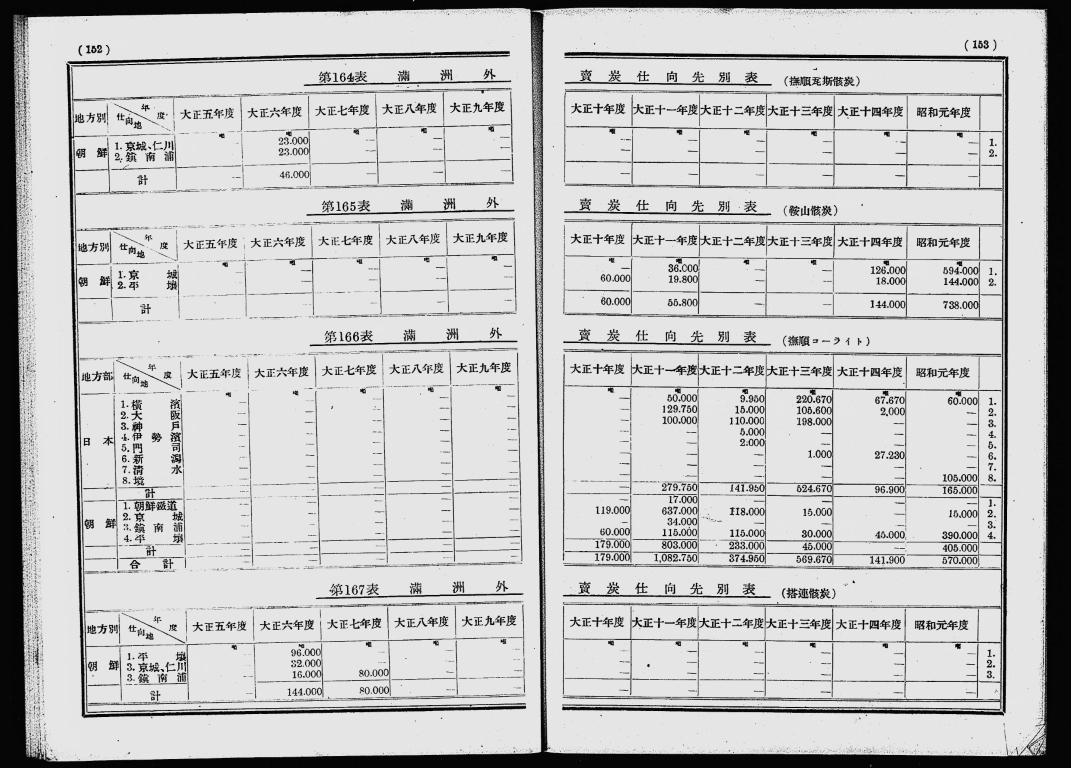 (152)
第164表 滿洲外
地方別 年度 仕向地 大正五年度 大正六年度 大正七年度 大正八年度 大正九年度
朝鮮 1. 京城、仁川 — 23.000 — — —
2. 鎭南浦 — 23.000 — — —
計 — 46.000 — — —
第165表 滿洲外
地方別 年度 仕向地 大正五年度 大正六年度 大正七年度 大正八年度 大正九年度
朝鮮 1. 京城 — — — — —
2. 平壤 — — — — —
計 — — — — —
第166表 滿洲外
地方部 年度 仕向地 大正五年度 大正六年度 大正七年度 大正八年度 大正九年度
日本 1. 橫濱 — — — — —
2. 大阪 — — — — —
3. 神戶 — — — — —
4. 伊勢濱 — — — — —
5. 門司 — — — — —
6. 新潟 — — — — —
7. 淸水 — — — — —
8. 境 — — — — —
計 — — — — —
朝鮮 1. 朝鮮鐵道 — — — — —
2. 京城 — — — — —
3. 鎭南浦 — — — — —
4. 平壤 — — — — —
計 — — — — —
合計 — — — — —
第167表 滿洲外
地方別 年度 仕向地 大正五年度 大正六年度 大正七年度 大正八年度 大正九年度
朝鮮 1. 平壤 — 96.000 — — —
3. 京城、仁川 — 32.000 — — —
3. 鎭南浦 — 16.000 80.000 — —
計 — 144.000 80.000 — —
(153)
賣炭仕向先別表 (撫順瓦斯骸炭)
大正十年度 大正十一年度 大正十二年度 大正十三年度 大正十四年度 昭和元年度
— — — — — — 1.
— — — — — — 2.
— — — — — —
賣炭仕向先別表 (鞍山骸炭)
大正十年度 大正十一年度 大正十二年度 大正十三年度 大正十四年度 昭和元年度
— 36.000 — — 126.000 594.000 1.
60.000 19.800 — — 18.000 144.000 2.
60.000 55.800 — — 144.000 738.000
賣炭仕向先別表 (撫順コーライト)
大正十年度 大正十一年度 大正十二年度 大正十三年度 大正十四年度 昭和元年度
— 50.000 9.950 220.670 67.670 60.000 1.
— 129.750 15.000 105.600 2,000 — 2.
— 100.000 110.000 198.000 — — 3.
— — 5.000 — — — 4.
— — 2.000 — — — 5.
— — — 1.000 27.230 — 6.
— — — — — — 7.
— — — — — 105.000 8.
— 279.750 141.950 524.670 96.900 165.000
— 17.000 — — — — 1.
119.000 637.000 118.000 15.000 — 15.000 2.
— 34.000 — — — — 3.
60.000 115.000 115.000 30.000 45.000 390.000 4.
179.000 803.000 233.000 45.000 — 405.000
179.000 1,082.750 374.950 569.670 141.900 570.000
賣炭仕向先別表 (搭連骸炭)
大正十年度 大正十一年度 大正十二年度 大正十三年度 大正十四年度 昭和元年度
— — — — — — 1.
— — — — — — 2.
— — — — — — 3.
— — — — — —